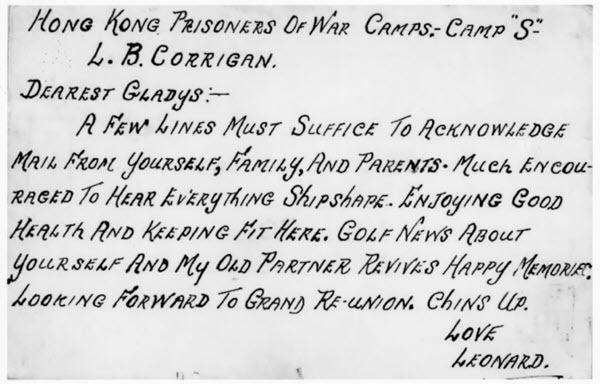 HONG KONG PRISONERS OF WAR CAMPS:- CAMP "S"-
L. B. CORRIGAN.
DEAREST GLADYS:-
A FEW LINES MUST SUFFICE TO ACKNOWLEDGE
MAIL FROM YOURSELF, FAMILY, AND PARENTS. MUCH ENCOU-
RAGED TO HEAR EVERYTHING SHIPSHAPE. ENJOYING GOOD
HEALTH AND KEEPING FIT HERE. GOLF NEWS ABOUT
YOURSELF AND MY OLD PARTNER REVIVES HAPPY MEMORIES.
LOOKING FORWARD TO GRAND RE-UNION. CHINS UP.
LOVE
LEONARD.